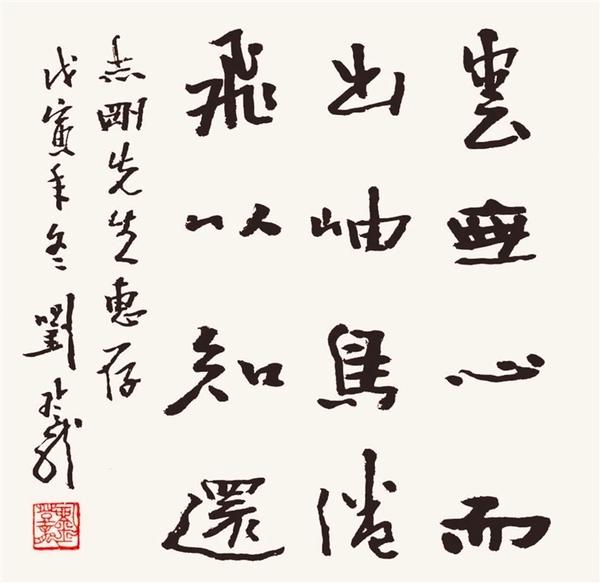 雲無心而
出岫鳥倦
飛以知還
志剛先生惠存
戊寅年冬 劉